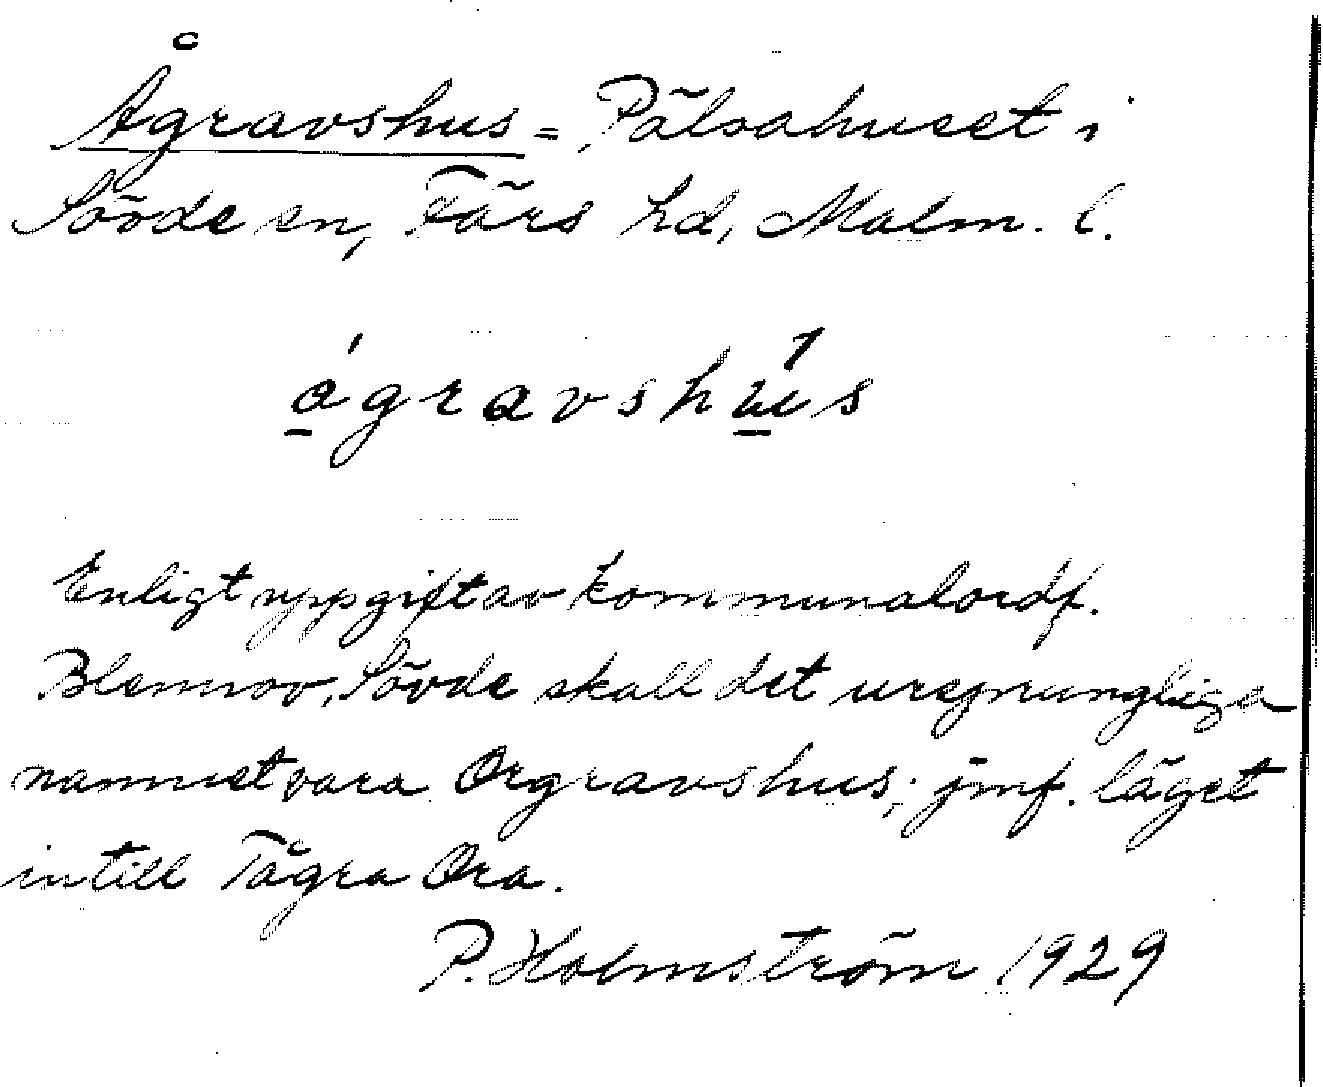 Ågravshus = Pälsahuset i
Sövde sn, Färs hd, Malm. l.
ágravshús
Enligt uppgift av kommunalordf.
Blennov, Sövde skall det ursprungliga
namnet vara Orgravshus; jmf. läget
intill Tågra Ora.
P. Holmström 1929